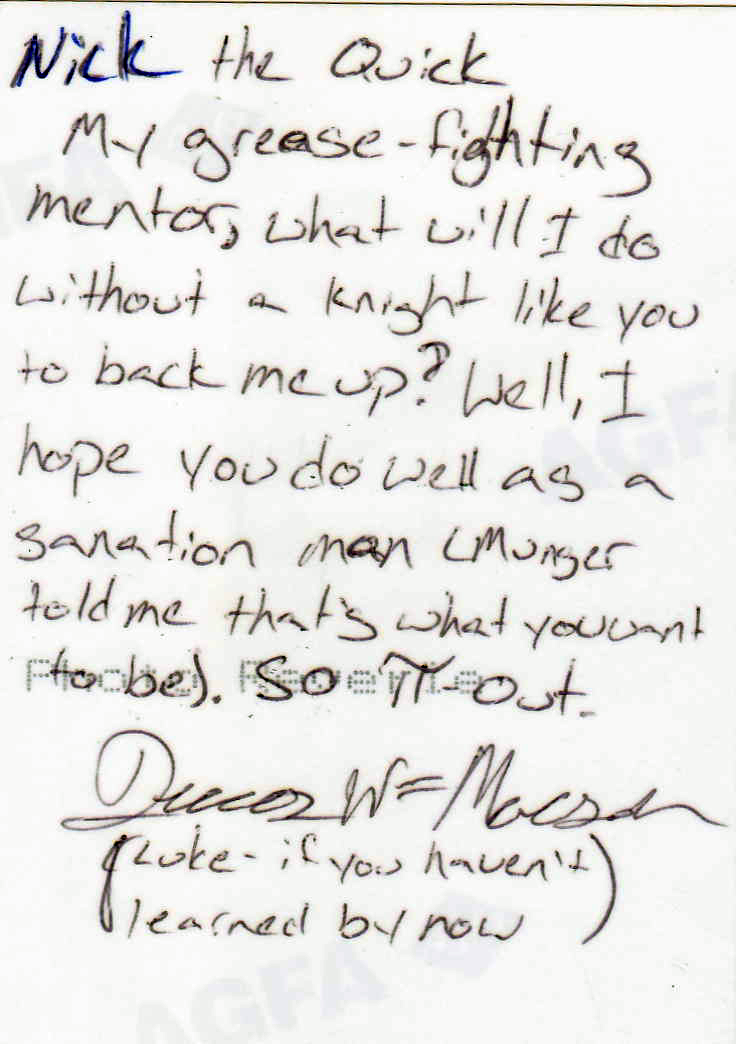 Nick the Quick
My grease-fighting
mentor, what will I do
without a knight like you
to back me up? Well, I
hope you do well as a
sanation man (Munger
told me that's what you want
to be). So π-out.
(Luke- if you haven't
learned by now)
AGFA
AGFA
AGFA